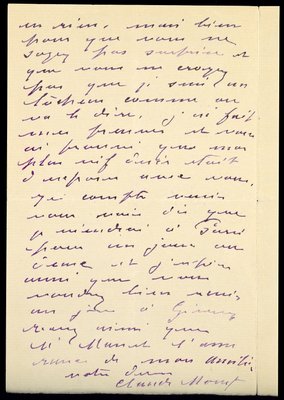 un rien, mais bien
pour que vous ne
soyez pas surprise et
que vous ne croyez
pas que je suis un
lâcheur comme on
va le dire, j'ai fait
mes preuves et vous
ai prouvé que mon
plus vif désir était
d'exposer avec vous.
je compte
vous voir dès que
je viendrai à Paris
pour un jour ou
deux et j'espère
aussi que vous
voudrez bien venir
un jour à Giverny
ainsi que
Mr Manet l'assu
rance de mon amitié
votre dévoué
Claude Monet